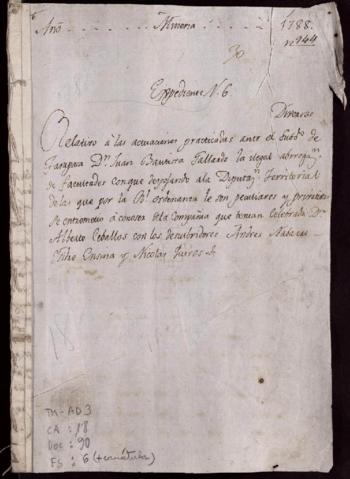 Año . . . . . Mineria . . . . . 1788.
nº 144
Expediente N. 6
Diverso
Relativo à las actuaciones practicadas ante el Subdº de
Tarapaca Dn. Juan Bautista la ilegal abrogn.
de facultades con que despojando ala Diputan. Territorial
delas que por la Rl. ordenanza le son peculiares y
Se entrometio à conocer dela Compañia que tenian Celebrada Dn
Alberto Ceballos con los descubridores Andres
Ensina y Nicolas
18
TM-AD3
CA : 18
Doc : 90
FS : 6 (+ carátula)